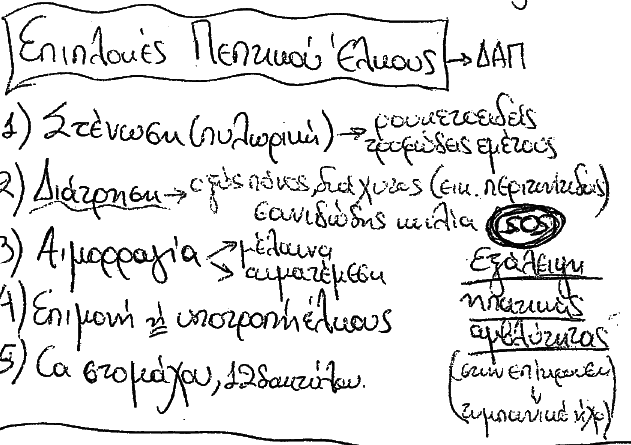 Επιπλοκές Πεπτικού Έλκους → ΔΑΠ
1) Στένωση (πυλωρική) → ρουκετοειδείς
τροφώδεις εμέτους
2) Διάτρηση → οξύς πόνος, διάχυτος (εικ. περιτονίτιδας)
σανιδώδης κοιλία SOS
3) Αιμορραγία → μέλαινα
→ αιματέμεση
Εξάλειψη
ηπατικής
αμβλύτητας
(στην επίκρουση
ή
τυμπανικό ήχο)
4) Επιμονή ή υποτροπή έλκους
5) Ca στομάχου, 12δακτύλου.